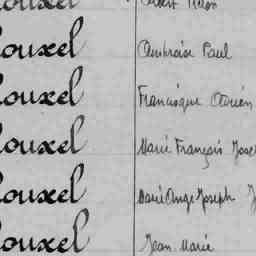 ouxel Ambroise Paul
ouxel Francisque Adrien
ouxel Marie François Jose
ouxel Marie Ange Joseph J
ouxel Jean Marie